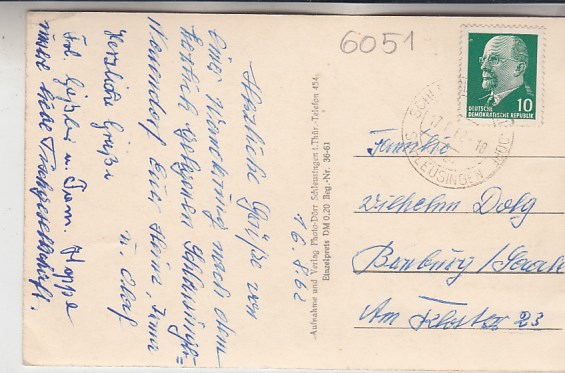 Herzliche Grüße von
einer Wanderung nach dem
herrlich gelegenen Schleusinger-
Neuendorf Eure Heinz, Irma
u. Olaf
Herzliche Grüße
Frl. u. Fam. Hoppe
unsere liebe Tischgesellschaft.
16.8.62
Aufnahme und Verlag Photo-Dörr Schleusingen i. Thür. Telefon 454.
Einzelpreis DM 0,20 Beg.-Nr. 36-61
6051
10
DEUTSCHE
DEMOKRATISCHE REPUBLIK
SCHLEUSINGEN
Familie
Wilhelm Dolg
Bernburg/Saale
Am Kloster 23